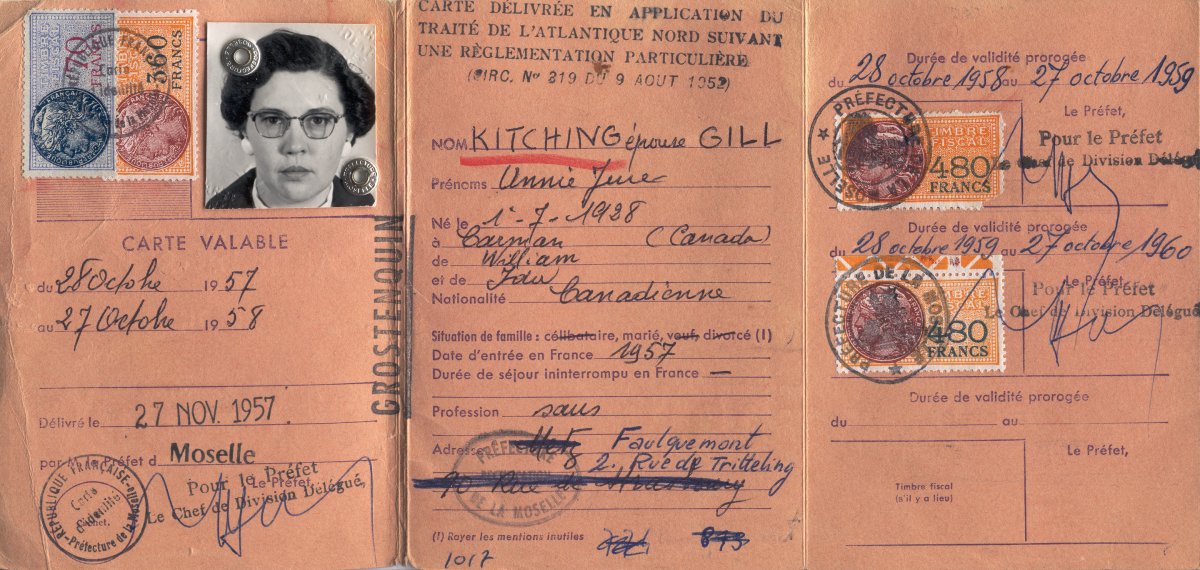 70
FRANCS
360
FRANCS
CARTE VALABLE
du 28 Octobre 1957
au 27 Octobre 1958
Délivré le 27 NOV. 1957
par M. le Préfet d Moselle
Pour le Préfet
Le Préfet,
Le Chef de Division Délégué,
RÉPUBLIQUE FRANÇAISE
Carte
d'identité
Cachet.
Préfecture de la Moselle
GROSTENQUIN
CARTE DÉLIVRÉE EN APPLICATION DU
TRAITÉ DE L'ATLANTIQUE NORD SUIVANT
UNE RÈGLEMENTATION PARTICULIÈRE
(CIRC. No 219 DU 9 AOUT 1952)
NOM KITCHING épouse GILL
Prénoms Annie June
Né le 1-7-1928
à Carman (Canada)
de William
et de Ida
Nationalité Canadienne
Situation de famille : célibataire, marié, veuf, divorcé (1)
Date d'entrée en France 1957
Durée de séjour ininterrompu en France —
Profession sans
Adresse Metz Faulquemont
2. Rue de Tritteling
90 Rue de Strasbourg
PRÉFECTURE
DE LA MOSELLE
(1) Rayer les mentions inutiles
1017
Durée de validité prorogée
du 28 octobre 1958 au 27 octobre 1959
Le Préfet,
Pour le Préfet
Le Chef de Division Délégué
PRÉFECTURE DE LA MOSELLE
TIMBRE
FISCAL
480
FRANCS
Durée de validité prorogée
du 28 octobre 1959 au 27 octobre 1960
Le Préfet,
Pour le Préfet
Le Chef de Division Délégué
PRÉFECTURE DE LA MOSELLE
TIMBRE
FISCAL
480
FRANCS
Durée de validité prorogée
du au
Le Préfet,
Timbre fiscal
(s'il y a lieu)